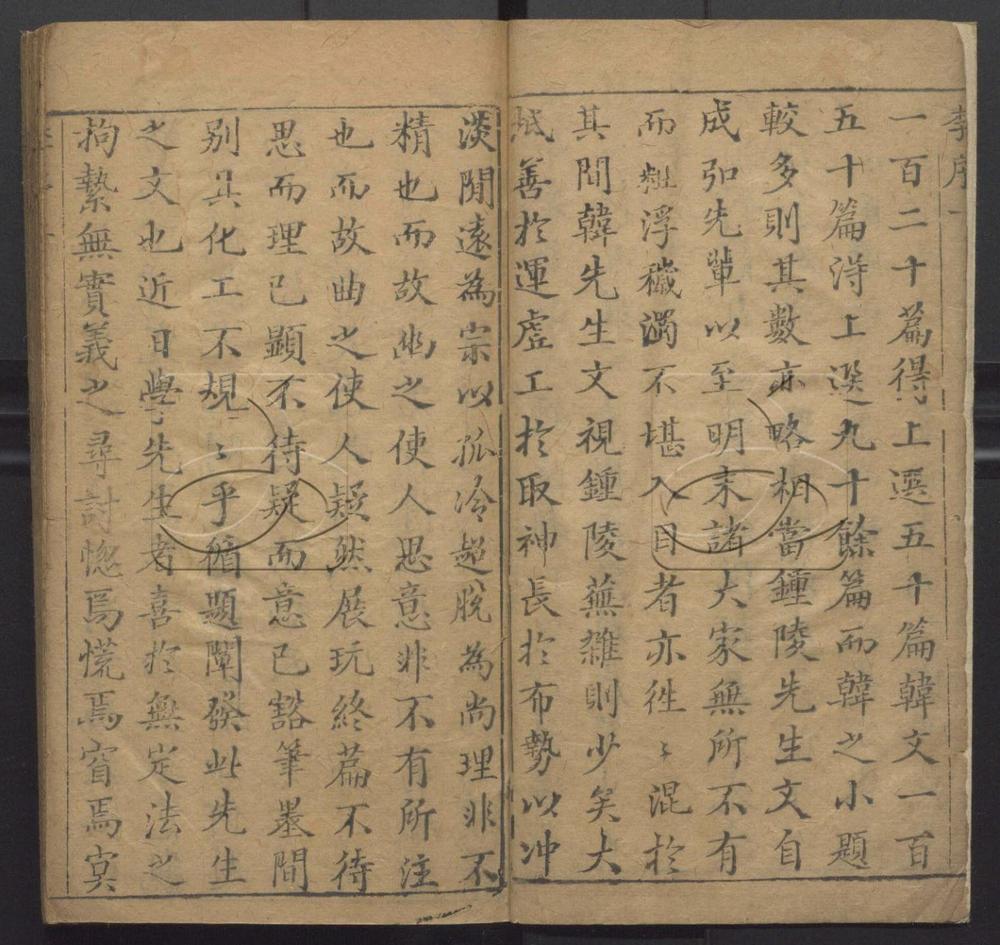 李序一
一百二十篇得上選五十篇韓文一百
五十篇淂上選九十餘篇而韓之小題
較多則其數亦略相當鍾陵先生文自
成弘先輩以至明末諸大家無所不有
而粗浮穢濁不堪入目者亦徃〻混於
其間韓先生文視鍾陵蕪雜則少矣大
抵善於運虗工於取神長於布勢以冲
淡閒遠為宗以孤冷超脫為尚理非不
精也而故幽之使人思意非不有所注
也而故曲之使人疑然展玩終篇不待
思而理已顯不待疑而意已豁筆墨間
别具化工不規〻乎循題闡發此先生
之文也近日學先生者喜於無定法之
拘縶無實義之尋討惚焉慌焉窅焉寞